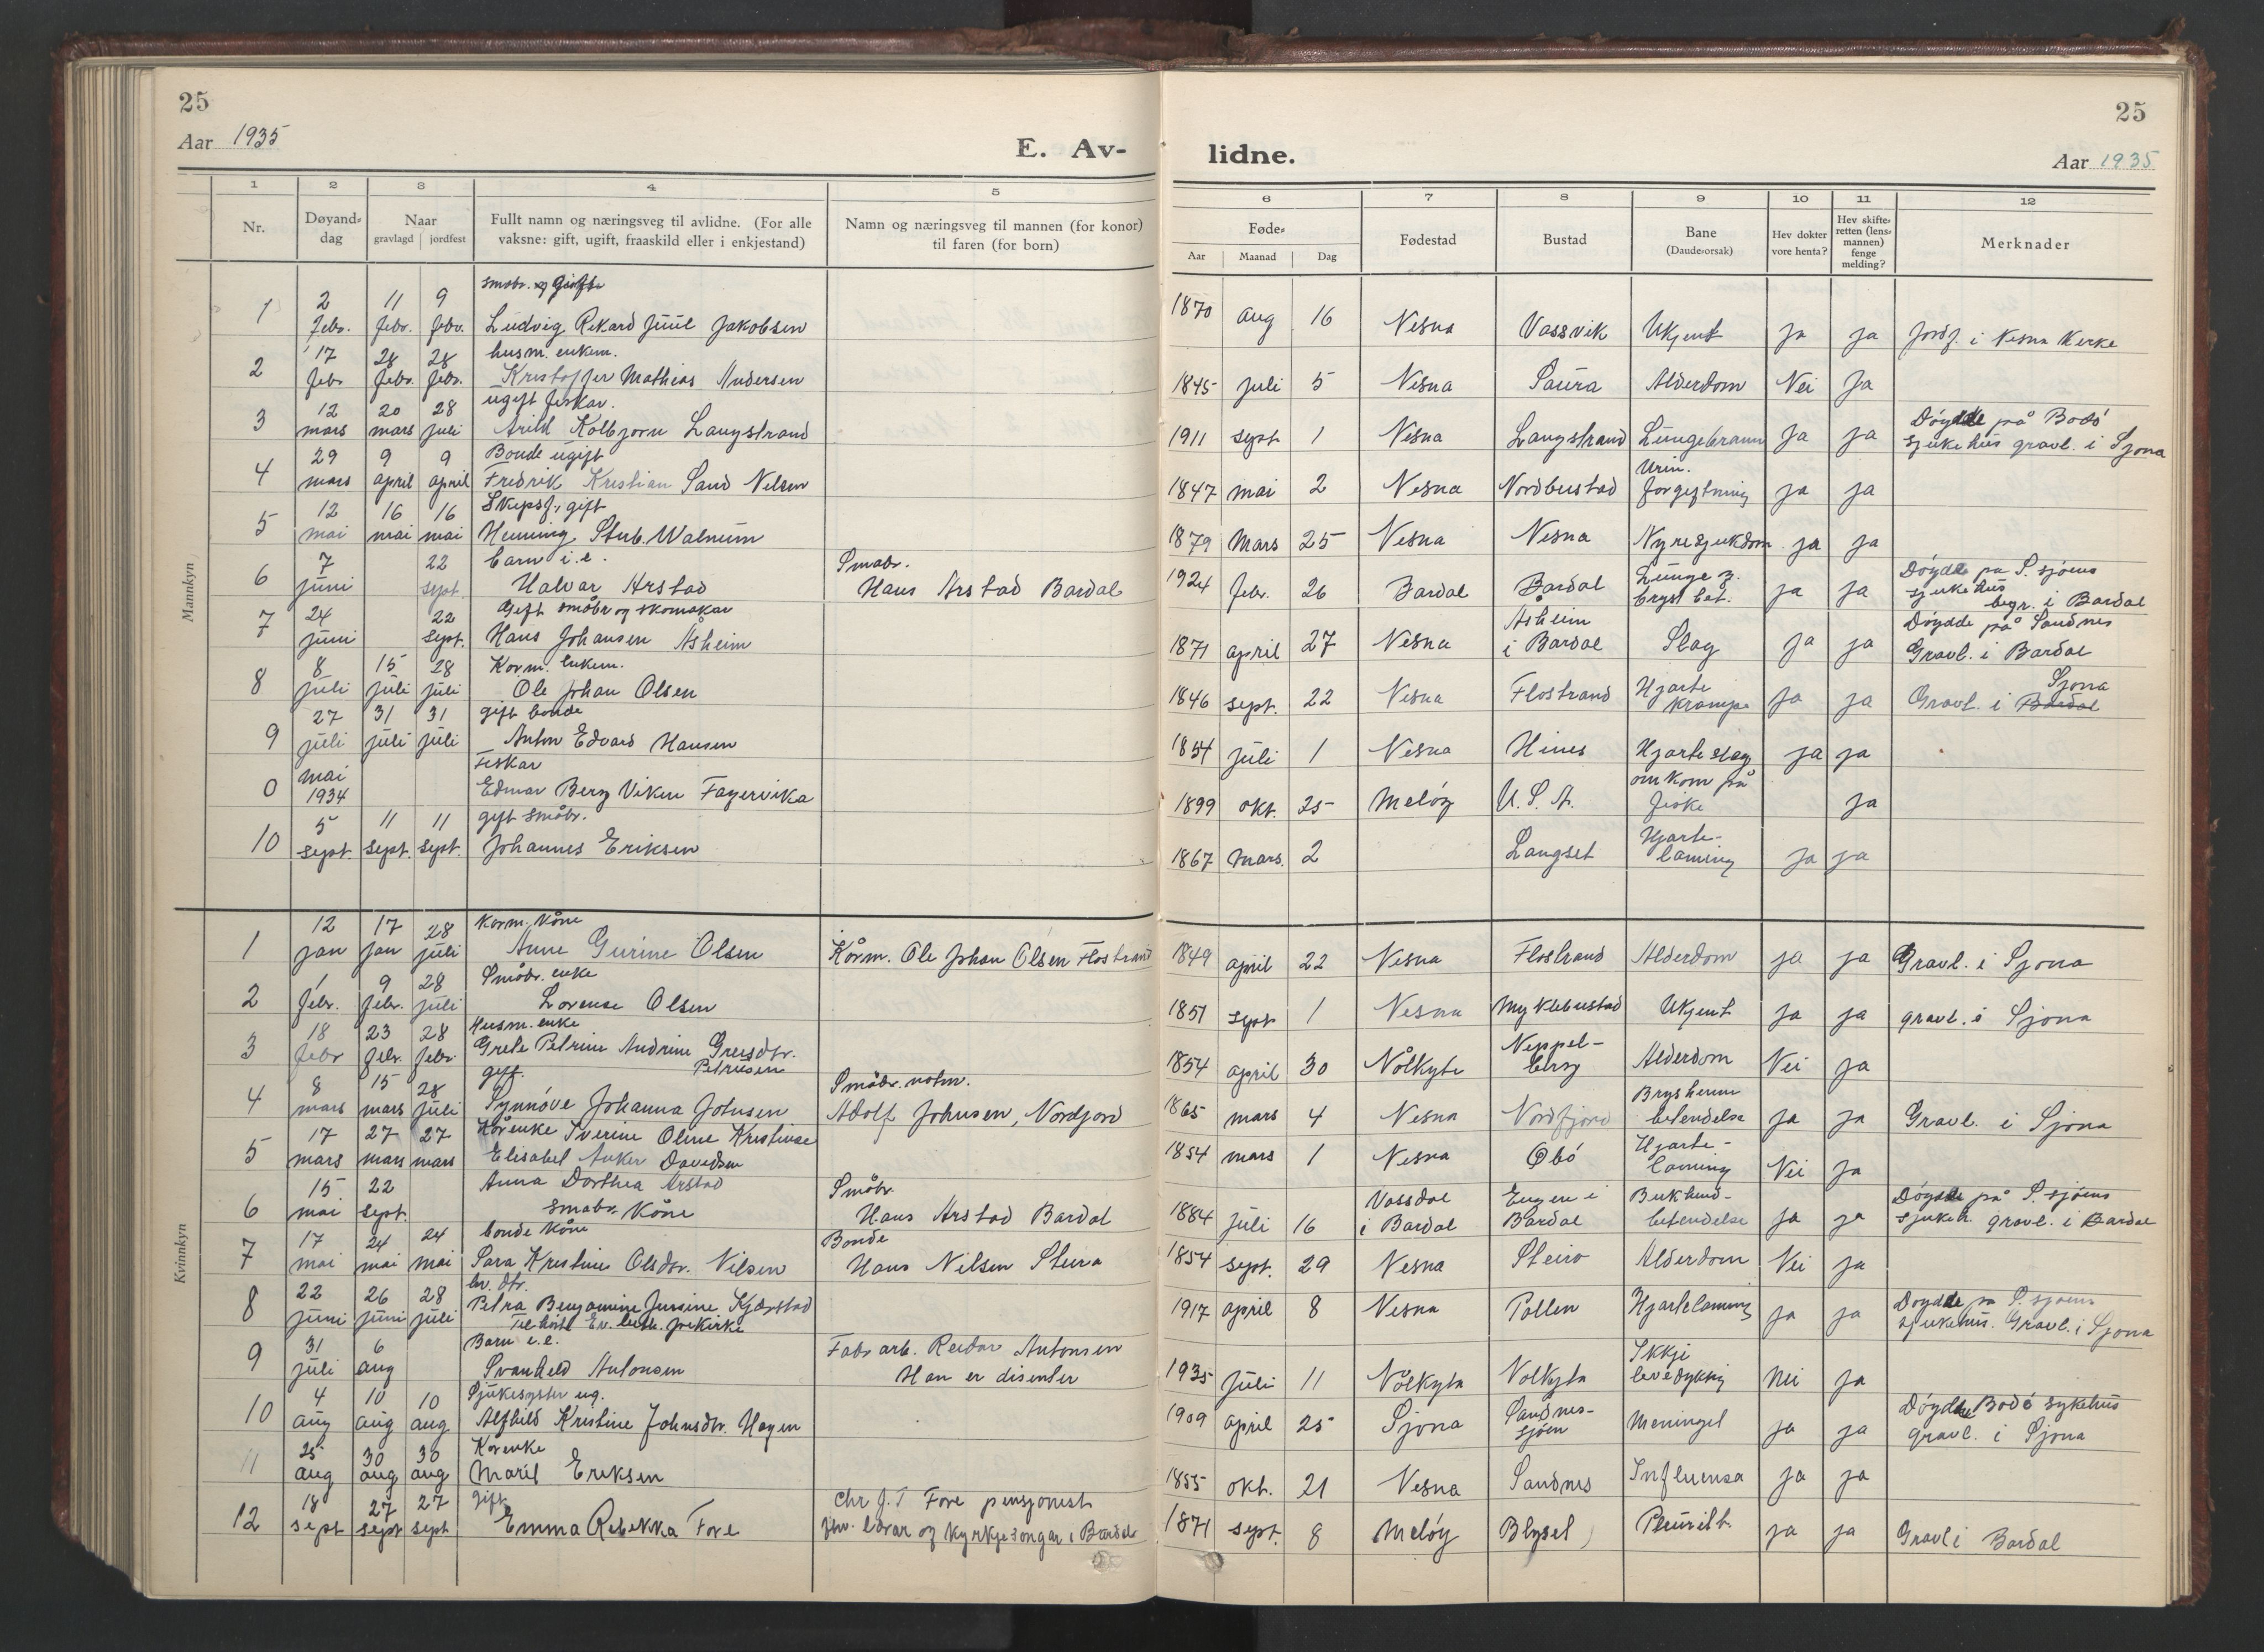 25
Aar 1935
E. Av-
1 2 3 4 5
Nr.
Døyand-dag
Naar
gravlagd jordfest
Fullt namn og næringsveg til avlidne. (For alle
vaksne: gift, ugift, fraaskild eller i enkjestand)
Namn og næringsveg til mannen (for konor)
til faren (for born)
Mannkyn
småbr. og gift
1 2 febr. 11 febr. 9 febr. Ludvig Rikard Juul Jakobsen
husm. enkem.
2 17 febr 28 febr. 28 febr. Kristoffer Mathias Andersen
ugift fiskar.
3 12 mars 20 mars 28 juli Arild Kolbjørn Langstrand
Bonde ugift
4 29 mars 9 april 9 april Fredrik Kristian Sand Nelsen
Skipsf., gift
5 12 mai 16 mai 16 mai Henning Stub. Walnum
barn i.e. Småbr.
6 7 juni 22 sept. Halvar Årstad Hans Årstad Bardal
Gift småbr og skomakar
7 24 juni 22 sept. Hans Johansen Åsheim
Korm. Enkem.
8 8 juli 15 juli 28 juli Ole Johan Olsen
gift bonde
9 27 juli 31 juli 31 juli Anton Edvard Hansen
Fiskar
0 mai 1934 Edmar Berg Viken Fagervika
gift småbr.
10 5 sept. 11 sept. 11 sept. Johannes Eriksen
Kvinnkyn
Korm. Kone
1 12 jan 17 jan 28 juli Anne Gurine Olsen Kårm. Ole Johan Olsen Flostrand
Småbr. enke
2 1 febr. 9 febr. 28 juli Lorense Olsen
Husm. enke
3 18 febr 23 febr. 28 febr. Grete Petrine Andrine Greisdtr.
Petersen
gift. Småbr. notm.
4 8 mars 15 mars 28 juli Synnøve Johanna Johnsen Adolf Johnsen, Nordfjord
Kårenke Sverine Oline Kristinse
5 17 mars 27 mars 27 mars Elisabet Anker Davidsen
Anna Dorthea Årstad Småbr.
6 15 mai 22 sept. småbr. Kone Hans Årstad Bardal
bonde Kone Bonde
7 17 mai 24 mai 24 mai Sara Kristine Olsdtr. Nilsen Hans Nilsen Steira
br. dtr.
8 22 juni 26 juni 28 juli Petra Benjamine Jursine Kjærstad
Tilhøld Ev. luth. frikirke
Barn e.e. Fabr arb. Reidar Antonsen
9 31 juli 6 aug Svanhild Antonsen Han er disenter
Sjukesyster ug.
10 4 aug 10 aug 10 aug Alfhild Kristine Johnsdtr. Hagen
Kårenke
11 25 aug 30 aug 30 aug Marit Eriksen
gift Chr J. T Fore pensjonist
12 18 sept 27 sept 27 sept Emma Rebekka Fore fhv. lærar og kyrkjesongar i Bardal
25
lidne.
Aar 1935
6 7 8 9 10 11 12
Føde-
Aar Maanad Dag
Fødestad
Bustad
Bane
(Daude-orsak)
Hev dokter
vore henta?
Hev skifte-
retten (lens-
mannen)
fenge
melding?
Merknader
1870 aug 16 Nesna Vassvik Ukjent ja ja Jordf. i Nesna Kerke
1845 juli 5 Nesna Saura Alderdom Nei Ja
Døydde på Bodø
1911 sept 1 Nesna Langstrand Lungebrann ja ja sjukehus gravl. i Sjona
Urin.
1847 mai 2 Nesna Nordbustad forgiftning ja ja
1879 Mars 25 Nesna Nesna Nyresjukdom ja ja
Lunge og Døydde på S. sjøens
1924 febr. 26 Bardal Bardal bryst bet. ja ja sjukehus
begr. i Bardal
Åsheim Døydde på Sandnes
1871 april 27 Nesna i Bardal Slag ja ja Gravl. i Bardal
Hjarte Sjona
1846 sept. 22 Nesna Flostrand krampe ja ja Gravl. i Bardal
1854 juli 1 Nesna Hines Hjarteslag ja ja
omkom på
1899 okt. 25 Meløy U.S.A. fiske ja
Hjarte-
1867 Mars. 2 Langset laming ja ja
1849 april 22 Nesna Flostrand Alderdom ja ja Gravl. i Sjona
1851 sept 1 Nesna Myklebustad Ukjent ja ja gravl. i Sjona
Neppel-
1854 april 30 Nålkyta berg Alderdom Nei ja
Brysthinne
1865 mars 4 Nesna Nordfjord betendelse ja ja Gravl. i Sjona
Hjarte-
1854 mars 1 Nesna Øbø laming Nei ja
Vassdal Engen i Bukhind- Døydde på S. sjøens
1884 juli 16 i Bardal Bardal betendelse ja ja sjukeh. gravl. i Bardal
1854 sept. 29 Nesna Steiro Alderdom Nei ja
Døydde på S. sjøens
1917 april 8 Nesna Pollen Hjartelaming ja ja sjukehus. Gravl. i Sjona
Ikkje
1935 juli 11 Nolkyta Nolkyta levedyktig Nei ja
Sandnes- Døydde Bodø sykehus
1909 april 25 Sjona sjøen Meningit ja ja gravl. i Sjona
1855 okt. 21 Nesna Sandnes Influensa ja ja
1871 sept. 8 Meløy Blyset Pleurit b. ja ja Gravl i Bardal